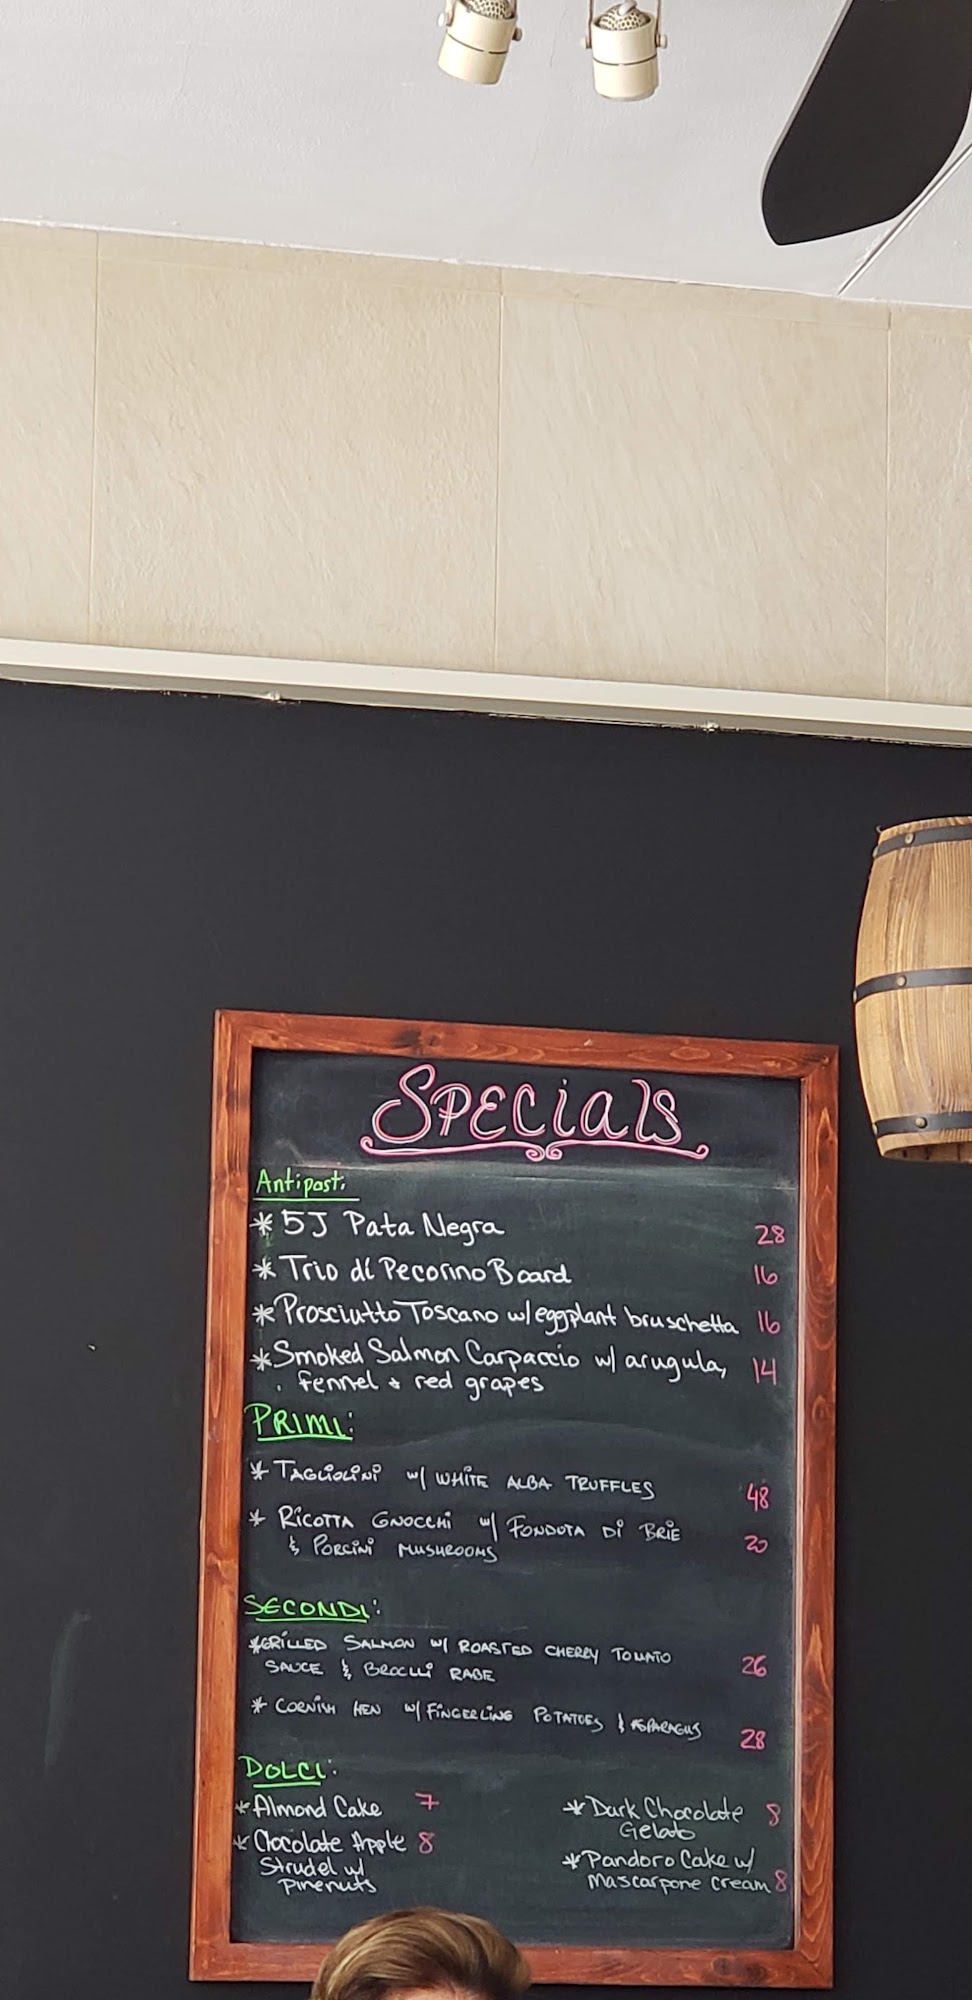 SPECialS
Antipasti
* 5J Pata Negra 28
* Trio di Pecorino Board 16
* Prosciutto Toscano w/ eggplant bruschetta 16
* Smoked Salmon Carpaccio w/ arugula, 14
fennel + red grapes
PRIMI:
* TAGLIOLINI w/ WHITE ALBA TRUFFLES 48
* RICOTTA GNOCCHI w/ FONDUTA DI BRIE 20
& PORCINI MUSHROOMS
SECONDI:
* GRILLED SALMON w/ ROASTED CHERRY TOMATO 26
SAUCE & BROCLLI RABE
* CORNISH HEN w/ FINGERLING POTATOES & ASPARAGUS 28
DOLCI:
* Almond Cake 7
* Chocolate Apple 8
Strudel w/
pinenuts
* Dark Chocolate 8
Gelato
* Pandoro Cake w/
mascarpone cream 8